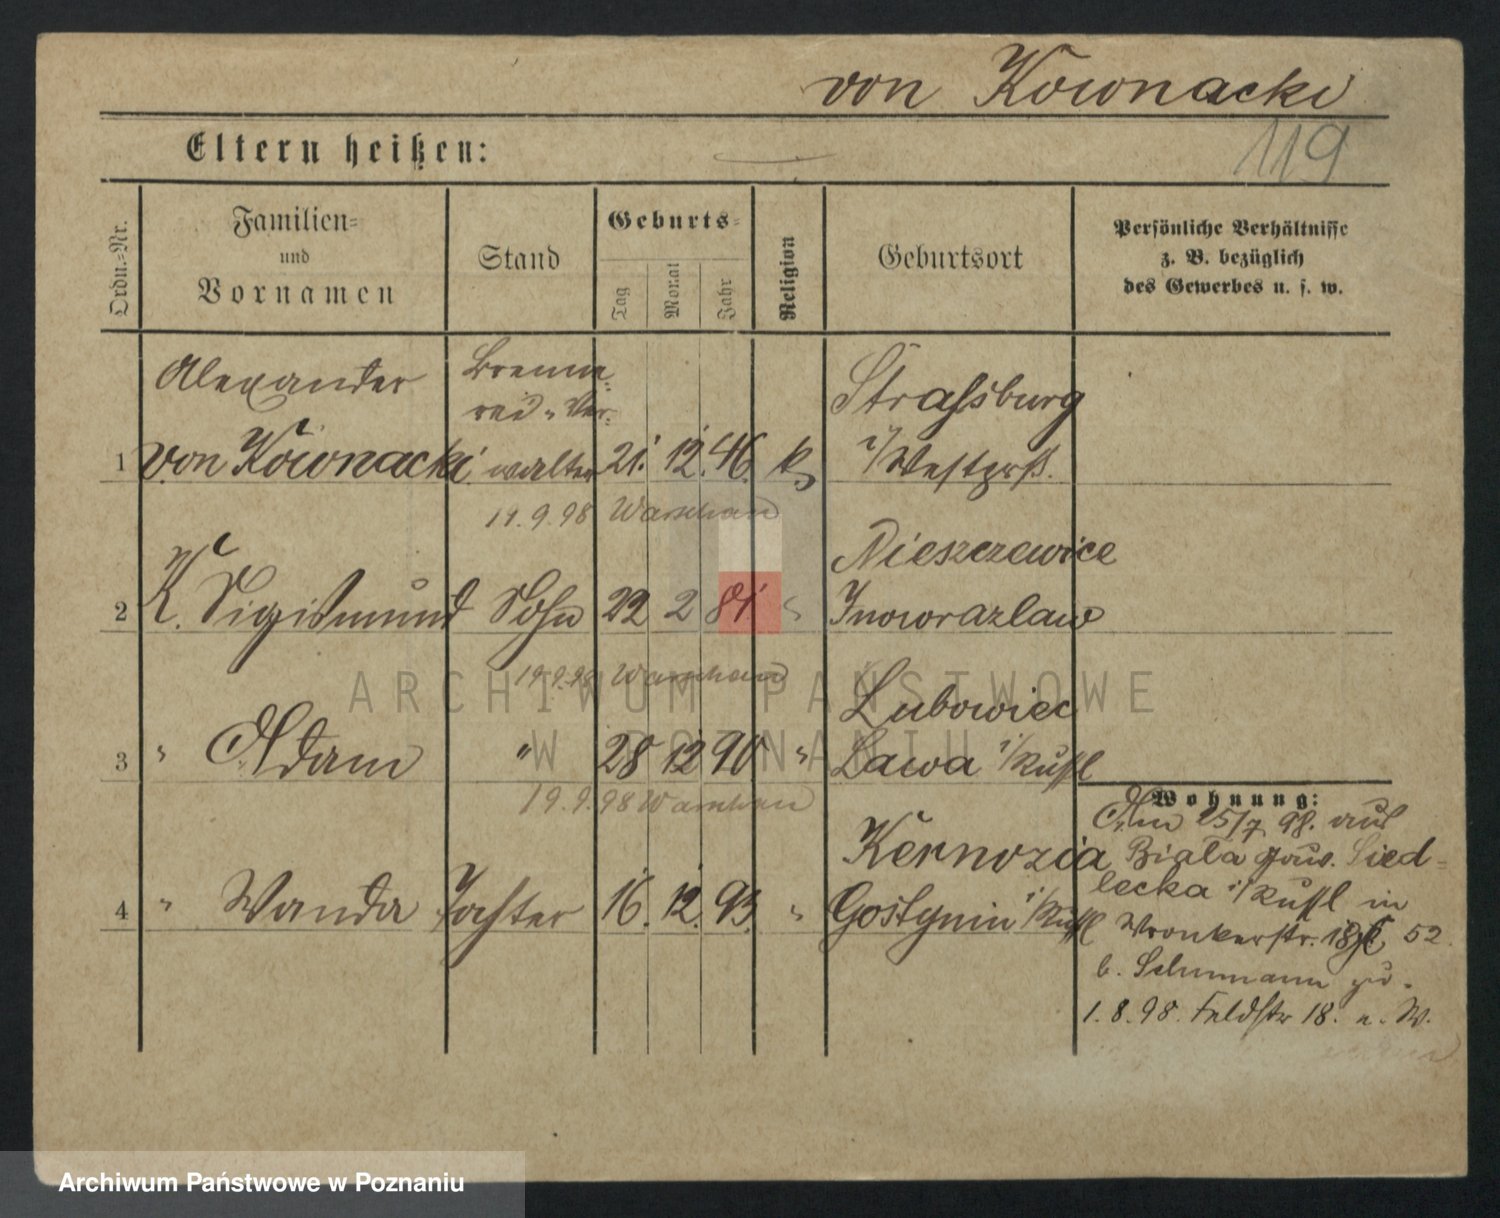 von Kownacki
119
Eltern heißen:
Ordn.=Nr.
Familien=
und
Vornamen
Stand
Geburts=
Tag
Monat
Jahr
Religion
Geburtsort
Persönliche Verhältnisse
z. B. bezüglich
des Gewerbes u. s. w.
Alexander
Brenne=
rei=Ver=
Strassburg
1 von Kownacki walter 21. 12. 46. k i/Westprß.
19.9.98 Warschau
Nieszczewice
2 K. Sigismund Sohn 22 2 81. " Inowrazlaw
19.9.98 Warschau
Lubowiec
3 " Adam " 28 12 90 " Lawa i/Rußl
19.9.98 Warschau
Kernozia
4 " Wanda Tochter 16. 12. 93. " Gostynin i/Rußl
Wohnung:
Am 25/7 98. aus
Biala Gouv. Sied=
lecka i/Rußl in
Wronkerstr. 52
b. Schumann zu.
1.8.98. Feldstr 18. n. W.
ARCHIWUM PAŃSTWOWE
W POZNANIU
Archiwum Państwowe w Poznaniu